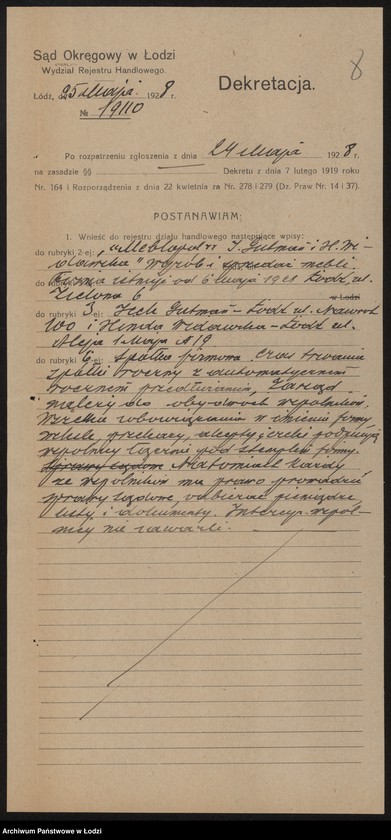 Sąd Okręgowy w Łodzi
Wydział Rejestru Handlowego.
8
Dekretacja.
Łódź, d. 25 Maja 1928 r.
№ 19110
Po rozpatrzeniu zgłoszenia z dnia 24 Maja 1928 r.
na zasadzie §§ Dekretu z dnia 7 lutego 1919 roku
Nr. 164 i Rozporządzenia z dnia 22 kwietnia za Nr. 278 i 279 (Dz. Praw Nr 14 i 37).
POSTANAWIAM:
1. Wnieść do rejestru działu handlowego następujące wpisy:
do rubryki 2-ej: I. Gutman i H. Wi-
dawska" Wyrób i sprzedaż mebli.
do Firma istnieje od 6 maja 1928 Łódź ul.
Zielona 6 w Łodzi
do rubryki Icek Gutman - Łódź ul. Nawrot
i Hinda Widawska - Łódź ul.
Aleja 1 Maja № 19
do rubryki 6 spółka firmowa czas trwania
spółki roczny z automatycznem
rocznem przedłużaniem, Zarząd
należy do obydwóch wspólników.
Wszelkie zobowiązania w imieniu firmy
weksle, przekazy, akcepty, czeki podpisują
wspólnicy łącznie pod stemplem firmy.
Sprawy sądowe Natomiast każdy
ze wspólników ma prawo prowadzić
sprawy sądowe, odbierać pieniądze,
listy i dokumenty. Intercyz wspól-
nicy nie zawarli.
Archiwum Państwowe w Łodzi